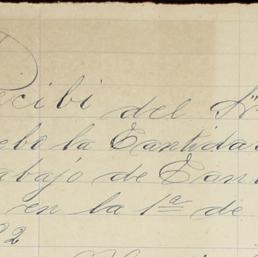 Recibi del Sr
ebo la Cantida
abajo de Can
en la 1ª de
92